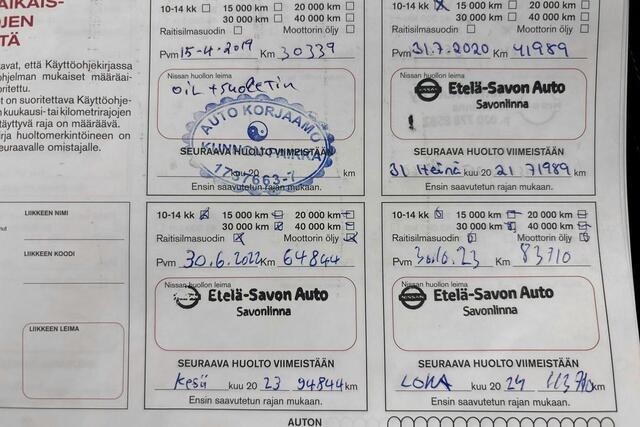 AIKAIS-
OJEN
TÄ
tavat, että Käyttöohjekirjassa
ohjelman mukaiset määräai-
oritettu.
ot on suoritettava Käyttöohje-
kuukausi- tai kilometrirajojen
täyttyvä raja on määräävä.
irja huoltomerkintöineen on
seuraavalle omistajalle.
LIIKKEEN NIMI
LIIKKEEN KOODI
LIIKKEEN LEIMA
10-14 kk 15 000 km 20 000 km
30 000 km 40 000 km
Raitisilmasuodin Moottorin öljy
Pvm 15-4-2019 Km 30339
Nissan huollon leima
OIL + suodatin
AUTO KORJAAMO
1797663-7
SEURAAVA HUOLTO VIIMEISTÄÄN
kuu 20 km
Ensin saavutetun rajan mukaan.
10-14 kk 15 000 km 20 000 km
30 000 km 40 000 km
Raitisilmasuodin Moottorin öljy
Pvm 31.7.2020 Km 41989
Nissan huollon leima
Etelä-Savon Auto
Savonlinna
SEURAAVA HUOLTO VIIMEISTÄÄN
31 Heinä kuu 20 21 71989 km
Ensin saavutetun rajan mukaan.
10-14 kk 15 000 km 20 000 km
30 000 km 40 000 km
Raitisilmasuodin Moottorin öljy
Pvm 30.6.2022 Km 64844
Nissan huollon leima
Etelä-Savon Auto
Savonlinna
SEURAAVA HUOLTO VIIMEISTÄÄN
Kesä kuu 20 23 94844 km
Ensin saavutetun rajan mukaan.
10-14 kk 15 000 km 20 000 km
30 000 km 40 000 km
Raitisilmasuodin Moottorin öljy
Pvm 30.10.23 Km 83710
Nissan huollon leima
Etelä-Savon Auto
Savonlinna
SEURAAVA HUOLTO VIIMEISTÄÄN
LOKA kuu 20 24 113710 km
Ensin saavutetun rajan mukaan.
AUTON